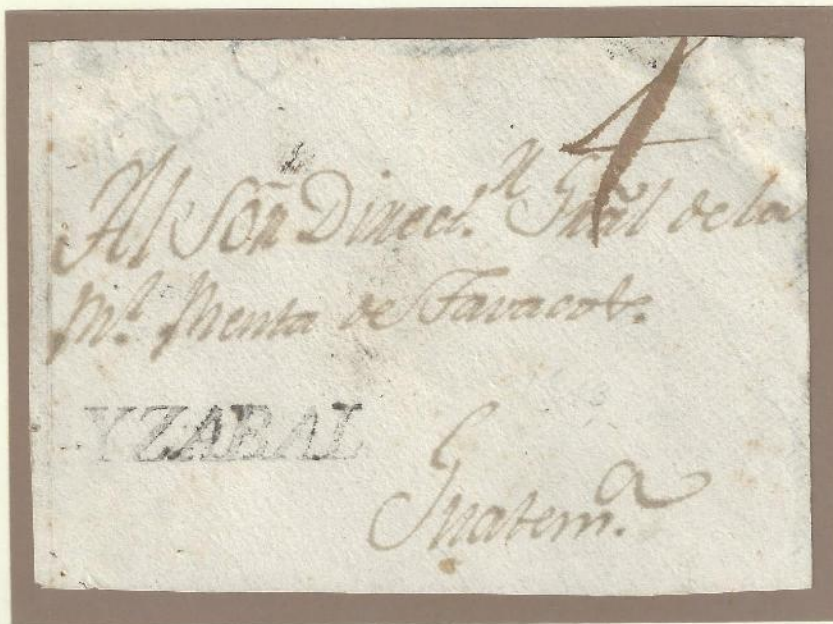 4
Al Sõr Direct.r Grãl de la
Rl. Renta de Tavacos.
YZABAL
Guatem.a